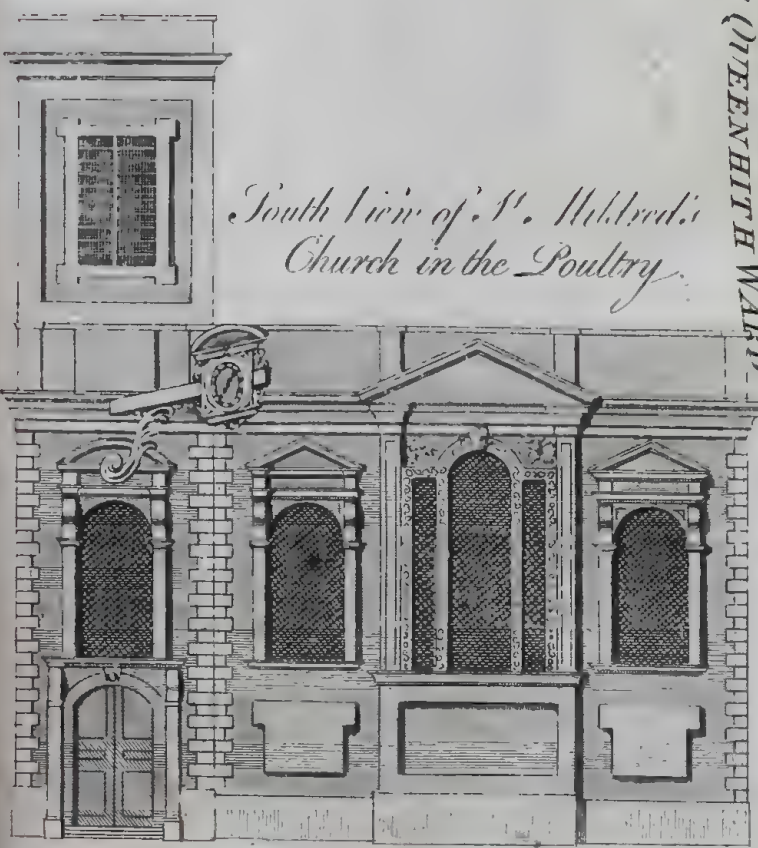 South View of St. Mildred's
Church in the Poultry.
QUEENHITH WARD